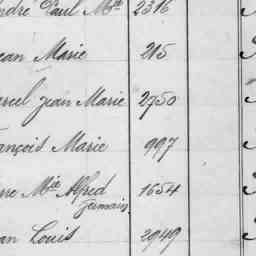 ndré Paul Mie 2316
ean Marie 215
arcel Jean Marie 2750
ançois Marie 997
rre Mie Alfred 1654
Germain
an Louis 2949